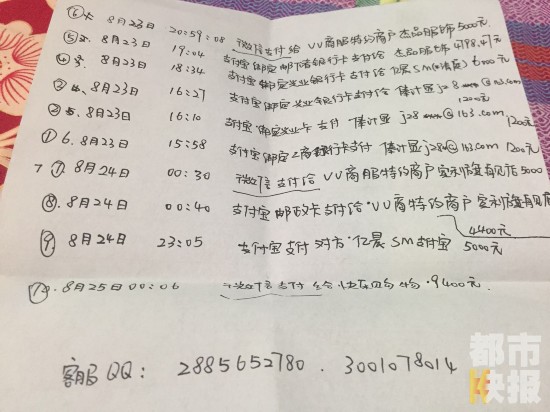 ⑥ 8月23日 20:59:08 微信支付给VV商服特约商户杰品服饰5000元
⑤ 8月23日 19:04 支付宝绑定邮政银行卡支付给杰品服饰4798.47元
④ 8月23日 18:34 支付宝绑定兴业银行卡支付给亿晨SM 6000元
③ 8月23日 16:27 支付宝绑定兴业银行卡支付给 j28 @163.com
1200元
② 8月23日 16:10 支付宝绑定兴业卡支付 j28 @163.com 1200元
① 6. 8月23日 15:58 支付宝绑定工商银行卡支付 j28 @163.com 1200元
7 ⑦ 8月24日 00:30 微信支付给VV商服特约商户宝利旗舰店5000
⑧ 8月24日 00:40 支付宝邮政卡支付给VV商特约商户宝利旗舰店
4400元
⑨ 8月24日 23:05 支付宝支付对方亿晨SM支付宝5000元
⑩ 8月25日 00:06 微信支付给快乐购物 9400元.
客服QQ: 2885652780 . 3001078014
都市
快报